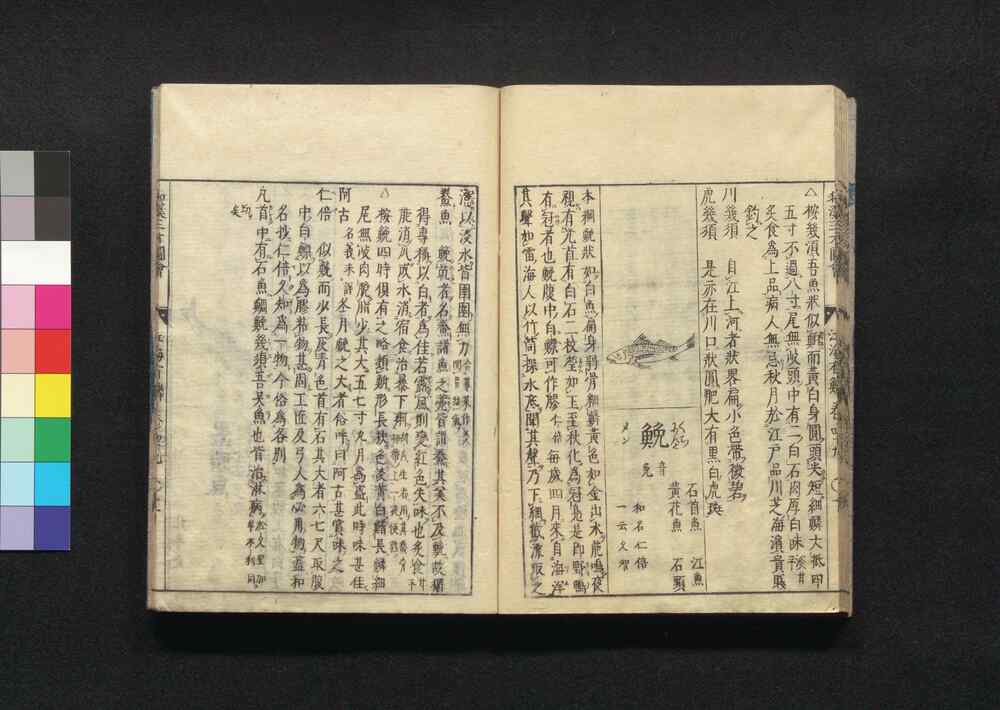 △按幾須吾魚狀似鯔而黃白身圓頭尖短細鱗大抵四
五寸不過八寸尾無岐頭中有二白石肉厚白味淡甘
炙食爲上品病人無忌秋月於江戸品川芝海濱貴賤
釣之
川幾須 自江上河者狀畧扁小色帶微碧
虎幾須 是亦在川口狀圓肥大有黑白虎斑
石首魚 江魚
黃花魚 石頭
鮸
音免
和名仁倍
一云久智
メン
本綱鮸狀如白魚扁身弱骨細鱗黃色如金出水能鳴夜
視有光首有白石二枚瑩如玉至秋化爲冠鳧是即野鴨
有冠者也鮸腹中白鰾可作膠 每歲四月來自海洋
其聲如雷海人以竹筒探水底聞其聲乃下網截流取之
潑以淡水皆圉圉無力
鯗魚 鮸乾者名鯗諸魚之乾皆謂鯗其美不及鮸故獨
得專稱以白者爲佳若露風則變紅色失味也炙食
能消瓜成水消宿食治暴下痢
△按鮸四時俱有之略類鱸形長狹色淡青白鬐長鱗細
尾無岐肉脆脂少其大五七寸九月爲盛此時味甚佳
阿古 名義未詳 冬月鮸之大者俗呼曰阿古甚賞味之
仁倍 似鮸而少長灰青色首有石其大者六七尺取腹
中白鰾以爲膠粘物甚固工匠及弓人爲必用物蓋和
名抄仁倍久知爲一物今俗爲各別
凡首中有石魚鯛鮸幾須吾吳魚也皆治淋病
矣